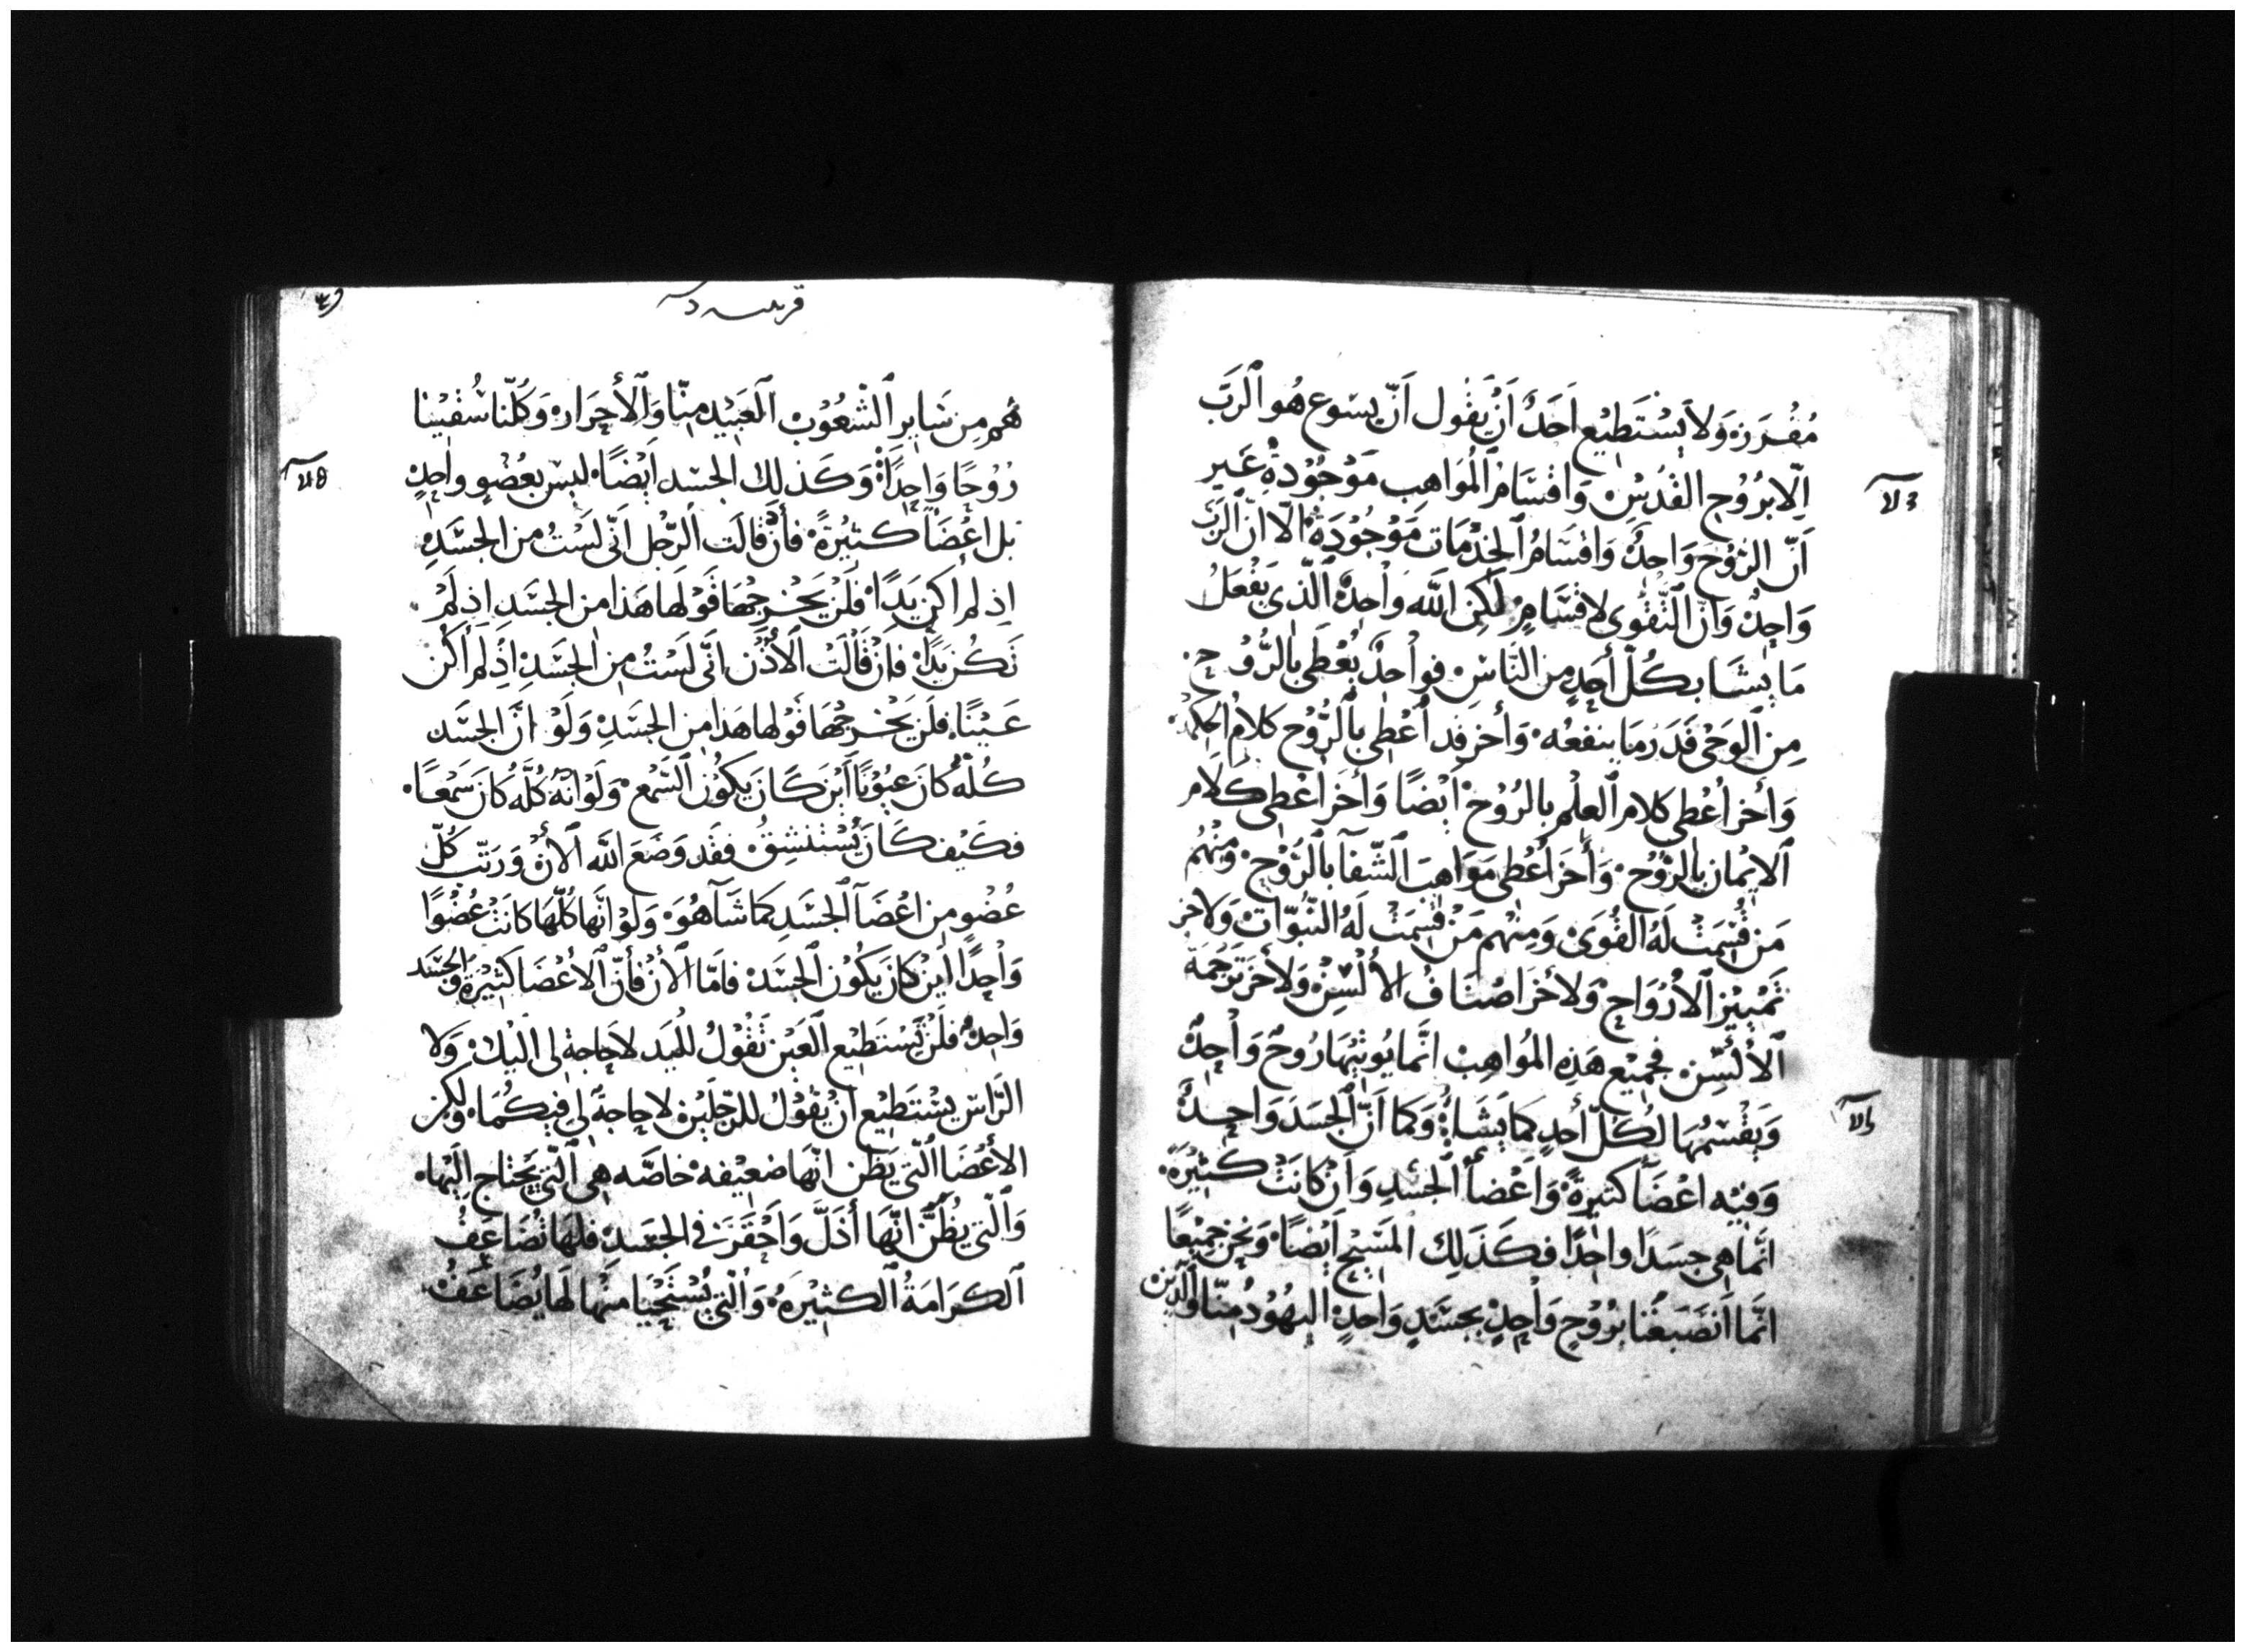 مُفْرَزَه وَلاَ يَسْتَطِيْع اَحَدٌ اَنْ يَقُول اَنّ يسَوع هُو اَلرَبّ
اِلّا بِرُوُحِ القُدُسِ وَاقْسَامُ اَلمُوَاهِب مَوْجُوُدةِ غَير
اَنّ الرُوُحَ وَاحِدٌ وَاقسَامُ اَلخِدْمَات مَوْجُوُدَةٌ الّا انّ الرَبّ
وَاحِدٌ وَانّ اَلتَّقُوى لاقسَامٍ لَكِن الله وَاحِدٌ اَلَّذي يَفْعَلُ
مَا يشَا بكُلّ أَحَدٍ مِن النَّاسِ فوَاحدٌ يُعْطى باِلرُّوُحِ
مِن اَلوَحْى قَدَرُ مَا ينفعُه وَأخر قد اُعْطى باِلرُّوُح كلامُ الحِكمَه
وَأخر اُعْطى كلام اَلعِلْم بالرُوُح اَيْضًا وَأخَر اُعْطى كَلَام
اَلايْمَان باِلرُّوُح وَأخَرَ اُعْطى مَوَاهِبَ اَلشّفَآ باِلرُّوُح وَمِنْهُم
مَن قُسِمَتْ لَهُ القُوَى وَمِنْهُم مَن قُسِمَتْ لَهُ النّبُوّات وَلاخر
تَمْيِيْز اَلاُرْوَاحِ وَلأخَر اصْنَافُ الأُلْسِنْ وَلأخَر تَرْجَمَة
اَلأَلْسِّن فجَمِيْع هَذِه المُوَاهِب انَّمَا يُوتِيْهَا رُوحٌ وَاحِدٌ
وَيقْسمُهَا لكُلّ أحدٍ كمَا يَشَاءُ وَكمَا اَنّ اَلجَسَدَ وَاحِدٌ
وَفيْه اعْضَآ كثيرةً وَاَعْضآ اَلجسَدِ وَاَنْ كانَتْ كثِيْرَةً
انَّمَا هِى جسَدًا واحدًا فكَذَلِك المَسِيْح اَيْضًا وَنحْن جمِيْعًا
انّمَا اَنصَبَغْنا برُوُحٍ وَاحِدٍ بجسَدٍ وَاحدٍ اليهُوُدُ مِنّا وَاَلَّذين
قرنتيه
هُم مِن سَايرِ اَلشّعُوُب اَلعَبِيْد مِنّا وَاَلأَحِرَار وَكُلّنا سُقيْنا
رُوُحًا وَاحِدًا وَكَذلِك الجسَد اَيْضًا ليسَ بعُضْوٍ واحِدٍ
بَل اعْضَآ كثيْرةً فأنْ قالَت اَلرّجْل اَنّى لَسْتُ من الجَسَدِ
اِذ لم أكن يَدًا فَلَنْ يَخْرجُهَا قَوْلهَا هَذا من الجسَدِ اِذ لَمْ
تَكُن يَدًا فاَنْ قَالَتْ اَلأُذُن انّى لسْتُ مِن الجسَدِ اِذْ لَم اَكُن
عَيْنًا فلَن يَخْرجُهَا قوْلها هَذا مِن الجسَدِ وَلَوْ انَّ الجسَد
كُلّهُ كانَ عيُوْنًا اَيْنَ كَانَ يَكوُن اَلسّمْع وَلَوْ انّهُ كُلّه كَانَ سَمْعًا
فكَيْف كَانَ يُسْتنْشِقُ فقَد وَضَعَ الله اَلأن وَرَتّب كُلّ
عُضْوٍ مِن اعْضَآ اَلجسَدِ كمَا شَآ هُوَ وَلَوْ انّها كُلّهَا كانَتْ عُضْوًا
وَاحِدًا اَيْن كانَ يَكوُن اَلجسَد فامّا اَلأَنْ فأَنّ اَلأعْضَا كثيْرَةٍ وَاَلجسَد
وَاحِدٌ فلَنْ تَسْتَطِيْع اَلعَيْن تَقُوْلُ للْيَد لاحَاجة لى اليْك وَلا
الرّاس يسْتَطيْع اَنْ يَقُوْلُ للرّجْلَيْن لاحَاجةً لى فيكُمَا وَلكن
الأعْضَا اَلّتى يَظُن انّهَا ضعِيْفه خاصّه هِى اَلّتى يَحْتاج اليْهَا
وَاَلّتى يُظَنَّ انّهَا أَذَلَّ وَاَحْقَرَ في الجسَدِ فلهَا تُضَاعَفُ
اَلكرَامَةُ اَلكثِيْرَة وَاَلّتى يُسْتَحْيَا مِنْها لَها يُضَاعَفُ